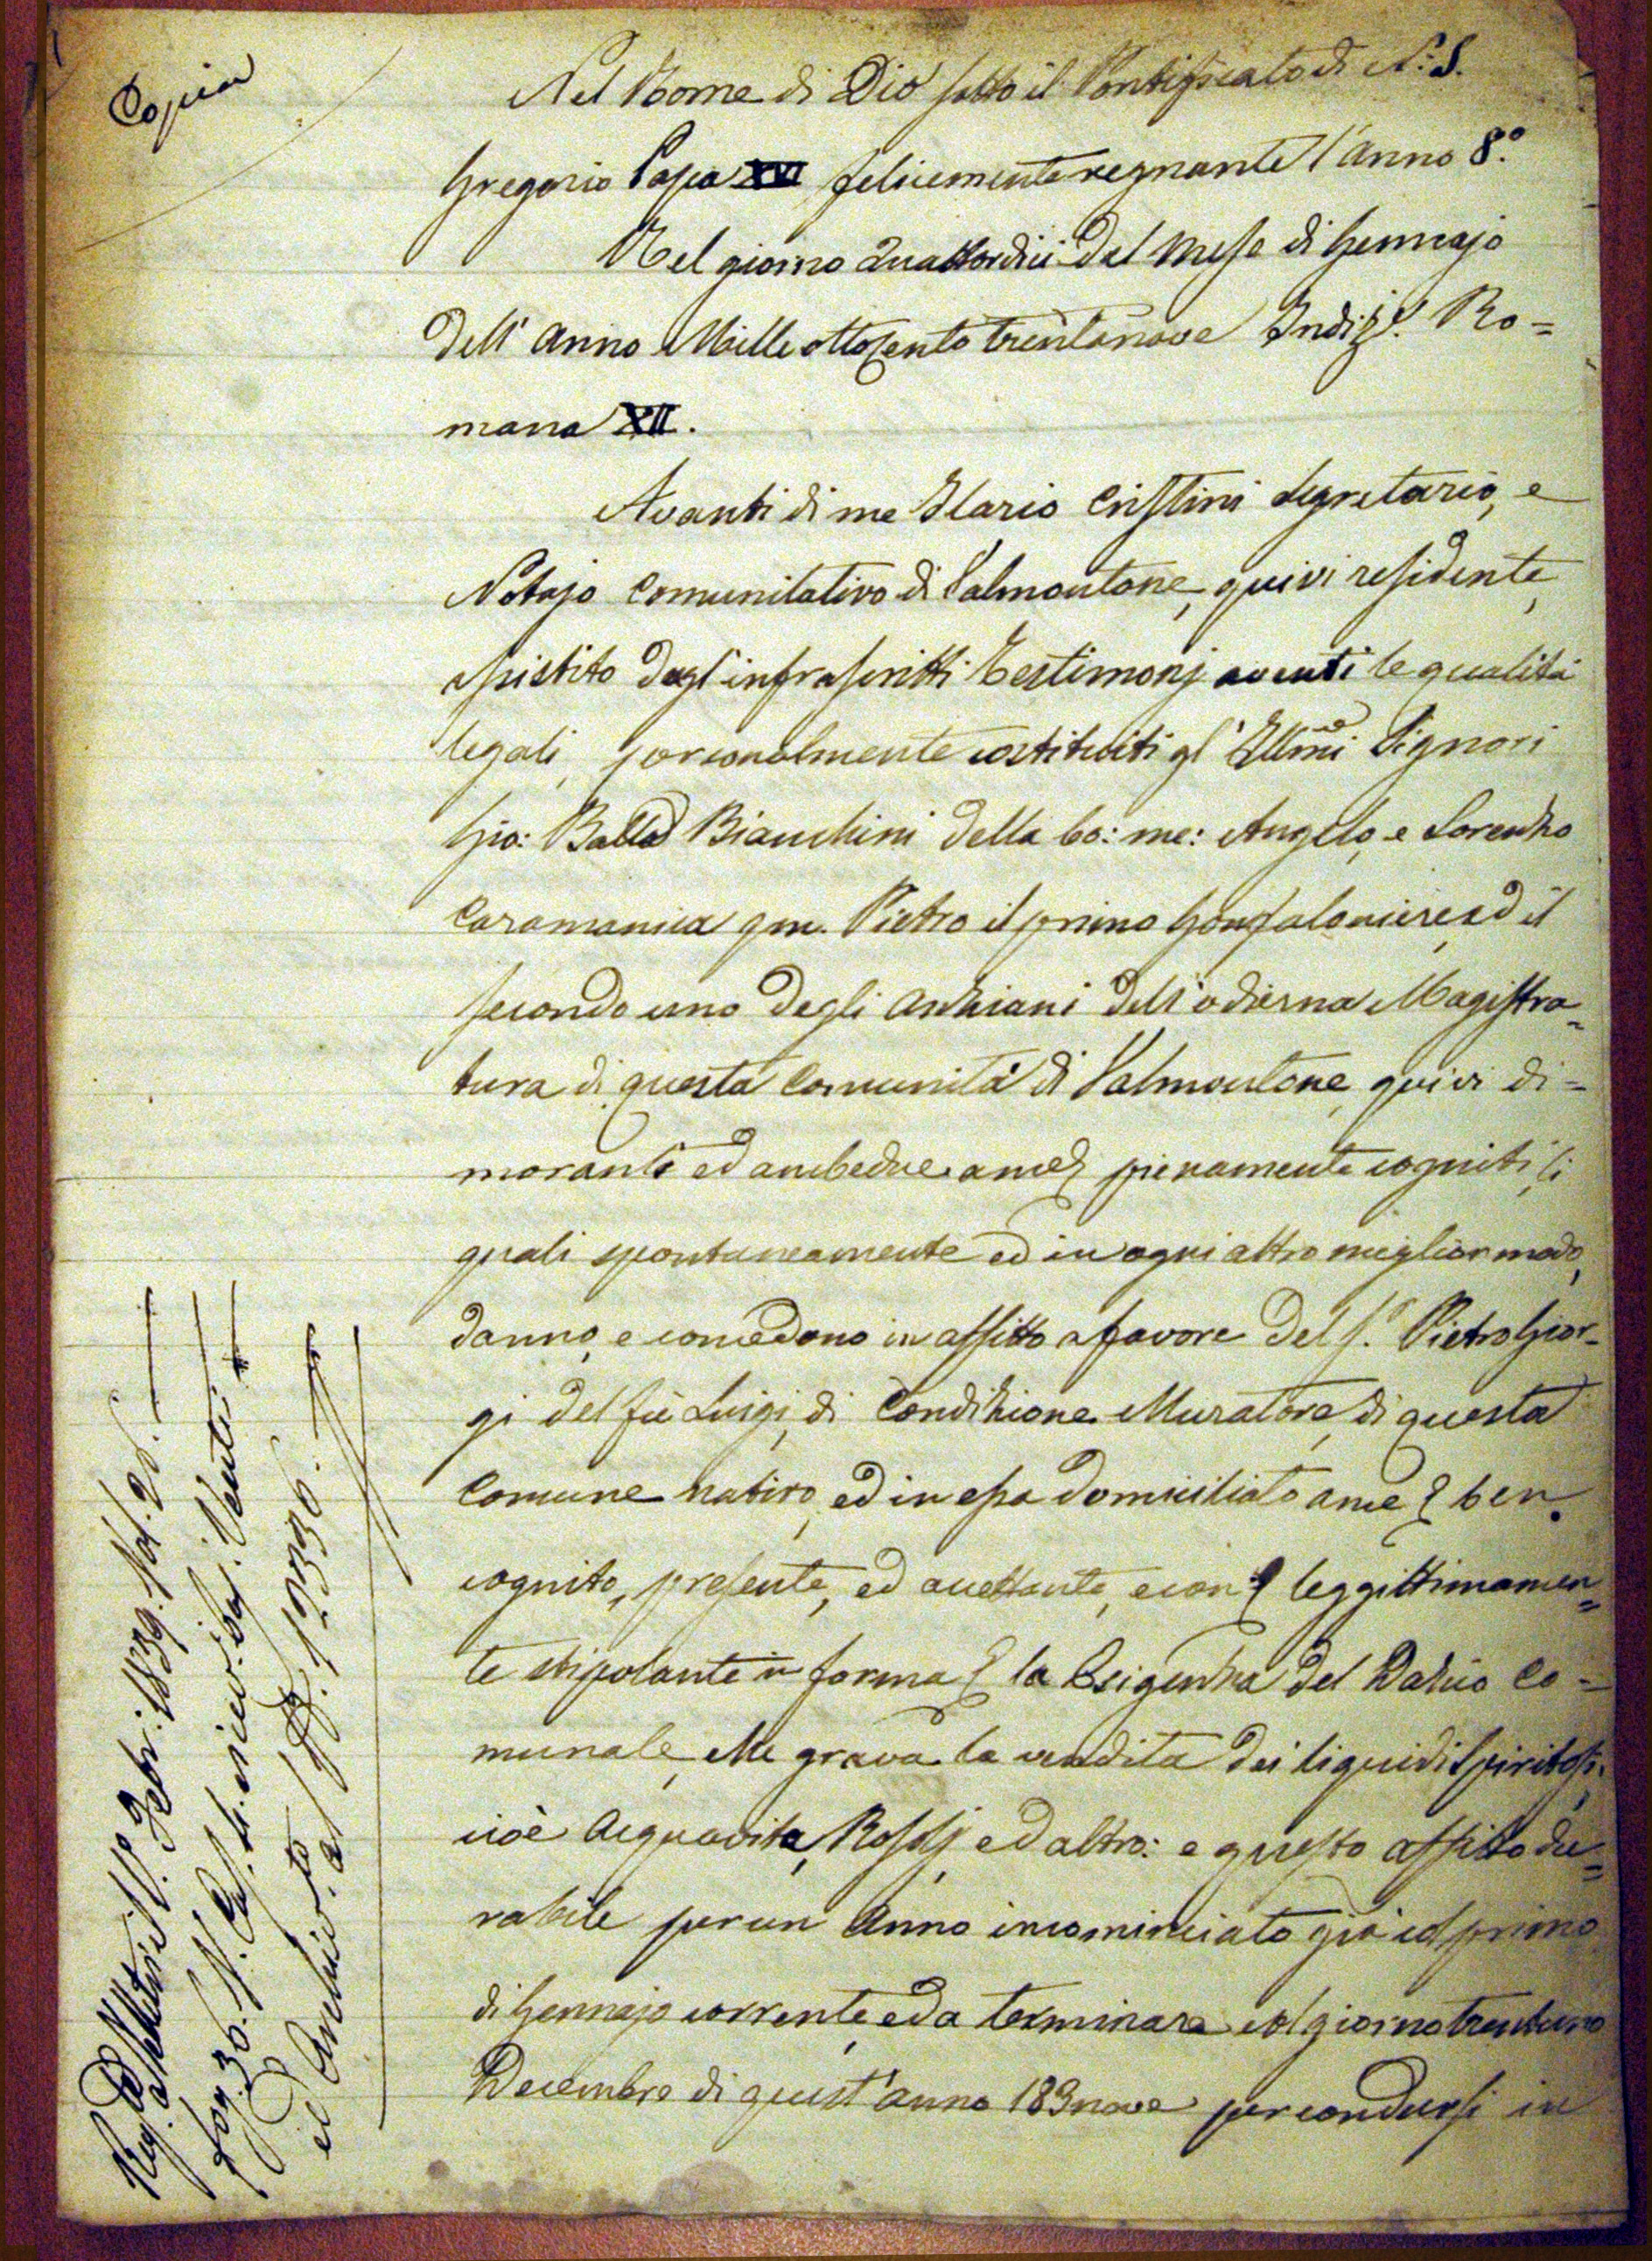 Copia
Nel Nome di Dio sotto il Pontificato di N. S.
Gregorio Papa XVI felicemente regnante l'anno 8.°
Nel giorno Quattordici del Mese di Gennajo
dell' anno Mille ottocento trentanove Indiz.e Ro=
mana XII.
Avanti di me Ilario Cristini Segretario, e
Notajo Comunitativo di Valmontone, quivi residente,
assistito dagl'infrascritti Testimonj aventi le qualità
legali, personalmente costituiti gl' Illmi Signori
Gio: Batta Bianchini della bo: me: Angelo, e Lorenzo
Caramanica qm. Pietro il primo Gonfaloniere, ed il
secondo uno degli Anziani dell'odierna Magistra=
tura di questa Comunità di Valmontone, quivi di=
moranti ed ambedue a me pienamente cogniti, li
quali spontaneamente ed in ogni altro miglior modo,
danno, e concedono in affitto a favore del S.r Pietro Gior=
gi del fù Luigi, di Condizione Muratore, di questa
Comune nativo, ed in essa domiciliato a me ben
cognito, presente, ed accettante, e con leggittimamen=
te stipolante in forma la Esigenza del Dazio Co=
munale, che grava la vendita dei liquidi Spiritosi,
cioè Acquavita, Rosolj ed altro: e questo affitto du=
rabile per un Anno incominciato già col primo
di Gennajo corrente, ed a terminare col giorno trentuno
Decembre di quest'anno 183nove per condursi in
Febr. 1839. Vol. 20.
fog. 30. Venti